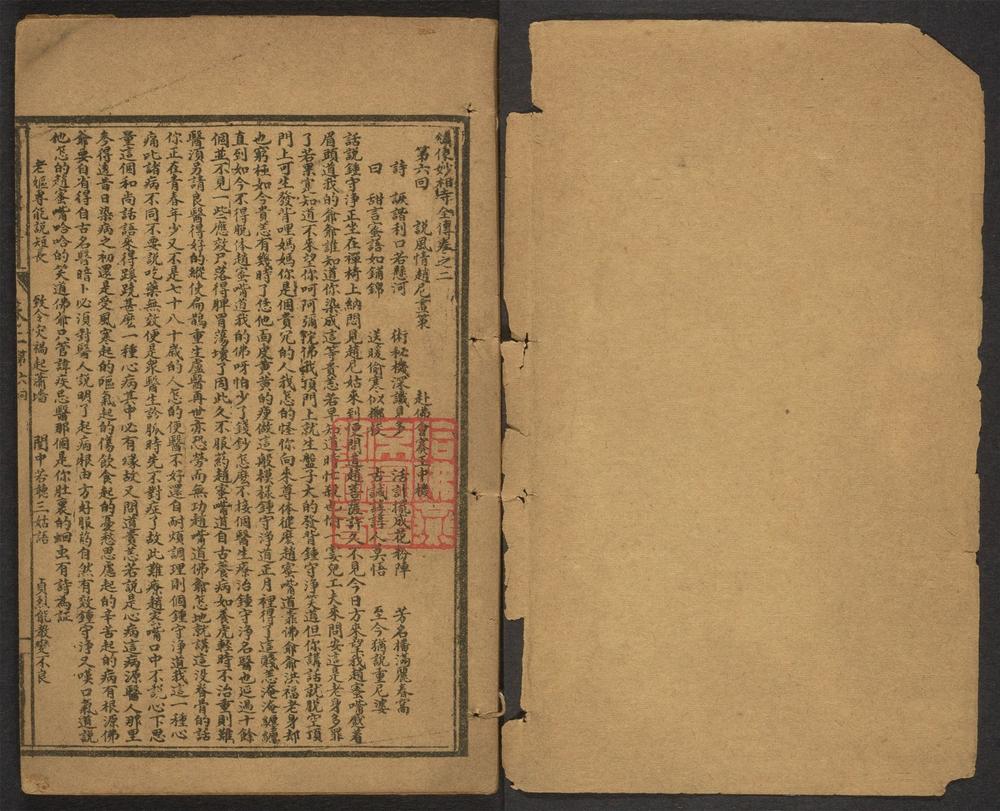 繡像妙相寺全傳卷之二
第六回 說風情趙尼畫策 赴佛會賽玉中機
詩 誤謂利口若懸河 術秘機深識見多 活計攪成花粉陣 芳名播滿麗春窩
曰 甜言蜜語如鋪錦 送暖偷寒似擲梭 古誡諄諄人莫悟 至今猶說重尼婆
話說鍾守淨正坐在禪椅上納悶見趙尼姑來到便問道趙菩薩許久不見今日方來望我趙蜜嘴蹙着
眉頭道我的爺爺誰知道你染成這等貴恙若早知道時忙殺也偷一霎兒工夫來問安這是老身多罪
了若果實知道不來望你呵阿彌陀佛我頂門上就生盤子大的發背鍾守淨笑道但你講話就脫空頂
門上可生發背哩媽媽你是個貴冗的人我怎的怪你向來尊体健麼趙蜜嘴道靠佛爺爺洪福老身却
也窮極如今貴恙有幾時了恁他面皮黃黃的瘦做這般模樣鍾守淨道正月裡得了這賤恙淹淹纏纏
直到如今不得脫体趙蜜嘴道我的佛呀怕少了錢鈔怎麼不接個醫生療治鍾守淨名醫也延過十餘
個並不見一些應效只落得脾胃蕩壞了因此久不服药趙蜜嘴道自古養病如養虎輕時不治重則難
醫須另請良醫得好的縱使扁鵲重生盧醫再世亦恐勞而無功趙嘴道佛爺怎地就講這没脊骨的話
你正在青春年少又不是七十八十歲的人怎的便醫不好還自耐煩調理則個鍾守淨道我這一種心
痛比諸病不同不要說吃藥無效便是衆醫生診脈時先不對症了故此難療趙蜜嘴口中不說心下思
量這個和尚話語來得蹊蹺甚麼一種心病其中必有緣故又問道貴恙若說是心病這病源醫人那里
參得透昔日染病之初還是受風寒起的嘔氣起的傷飲食起的憂愁思慮起的辛苦起的病有根源佛
爺要自省得自古名醫暗卜必須對醫人說明了起病根由方好服药自然有效鍾守淨又嘆口氣道說
他怎的趙蜜嘴哈哈的笑道佛爺只管諱疾忌醫那個是你肚裏的蛔虫有詩為証
老嫗專能說短長 致令灾禍起蕭墻 閨中若聽三姑語 貞烈能教變不良